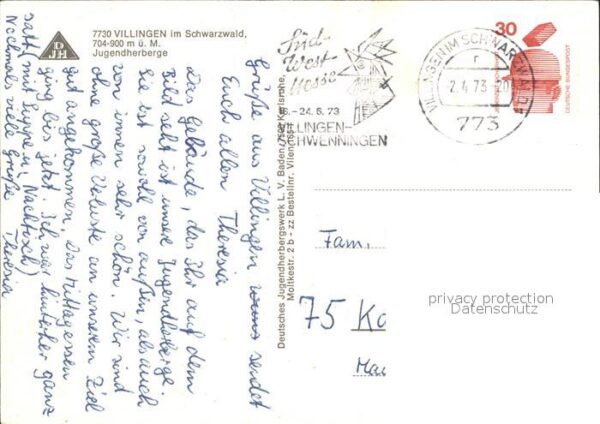 7730 VILLINGEN im Schwarzwald,
704-900 m ü. M.
Jugendherberge
DJH
Grüße aus Villingen sendet
Euch allen Theresia
Das Gebäude, das Ihr auf dem
Bild seht ist unsre Jugendherberge.
Sie ist sowohl von außen, als auch
von innen sehr schön. Wir sind
ohne große Verluste an unserem Ziel
gut angekommen. Das Mittagessen
ging bis jetzt. Ich war hinterher ganz
satt, mit Suppe u. Nachtisch)
Nochmals viele Grüße
Theresia
Deutsches Jugendherbergswerk L. V. Baden, 7500 Karlsruhe,
Moltkestr. 2 b - zz Bestellnr.
Süd-
West-
Messe
16.-24.6.73
VILLINGEN-
SCHWENNINGEN
VILLINGEN IM SCHWARZWALD
r
-2.4.73-20
773
30
DEUTSCHE BUNDESPOST
Fam.
75 Ka
Mau
privacy protection
Datenschutz